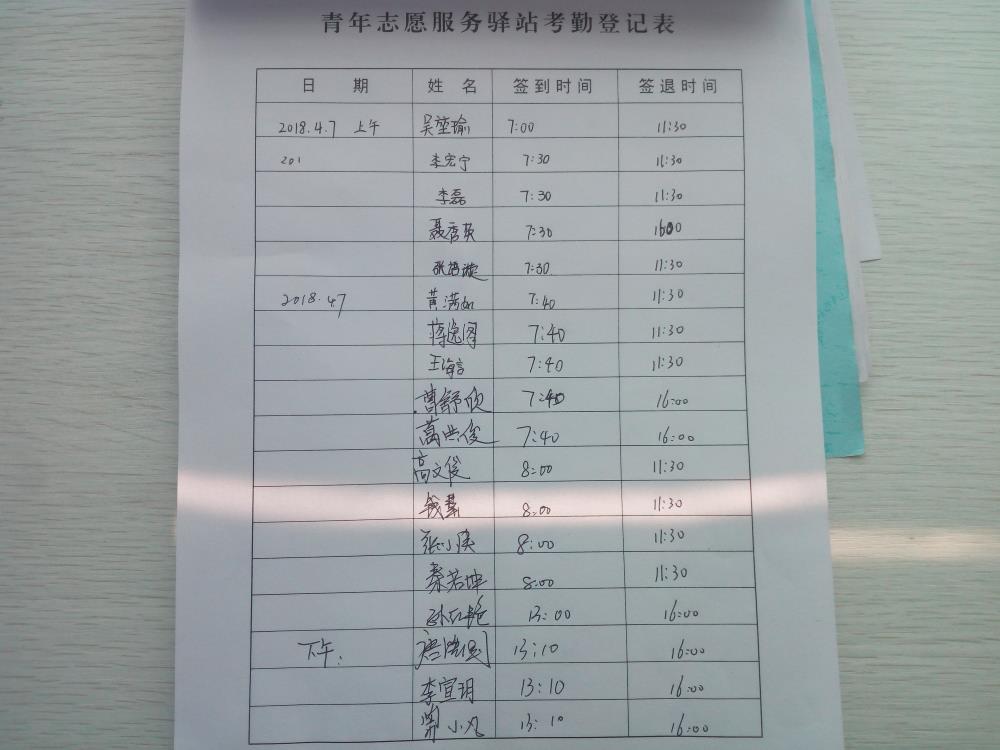 青年志愿服务驿站考勤登记表
日 期 姓 名 签到时间 签退时间
2018.4.7 上午 吴堃瑜 7:00 11:30
201 李宏宁 7:30 11:30
李磊 7:30 11:30
聂秀英 7:30 1600
张 7:30 11:30
2018.4.7 黄满如 7:40 11:30
蒋逸 7:40 11:30
王海言 7:40 11:30
葛舒欣 7:40 16:00
葛洪俊 7:40 16:00
高文俊 8:00 11:30
钱 8:00 11:30
张小 8:00 11:30
秦若坤 8:00 11:30
孙红艳 13:00 16:00
下午: 唐 13:10 16:00
李宣玥 13:10 16:00
小凡 13:10 16:00